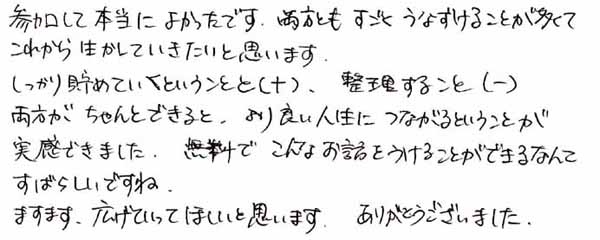 参加して本当によかったです。両方ともすごくうなずけることが多くて
これから生かしていきたいと思います。
しっかり貯めていくということと(＋)、整理すること(－)
両方がちゃんとできると、より良い人生につながるということが
実感できました。無料でこんなお話をうけることができるなんて
すばらしいですね。
ますます、広げていってほしいと思います。ありがとうございました。